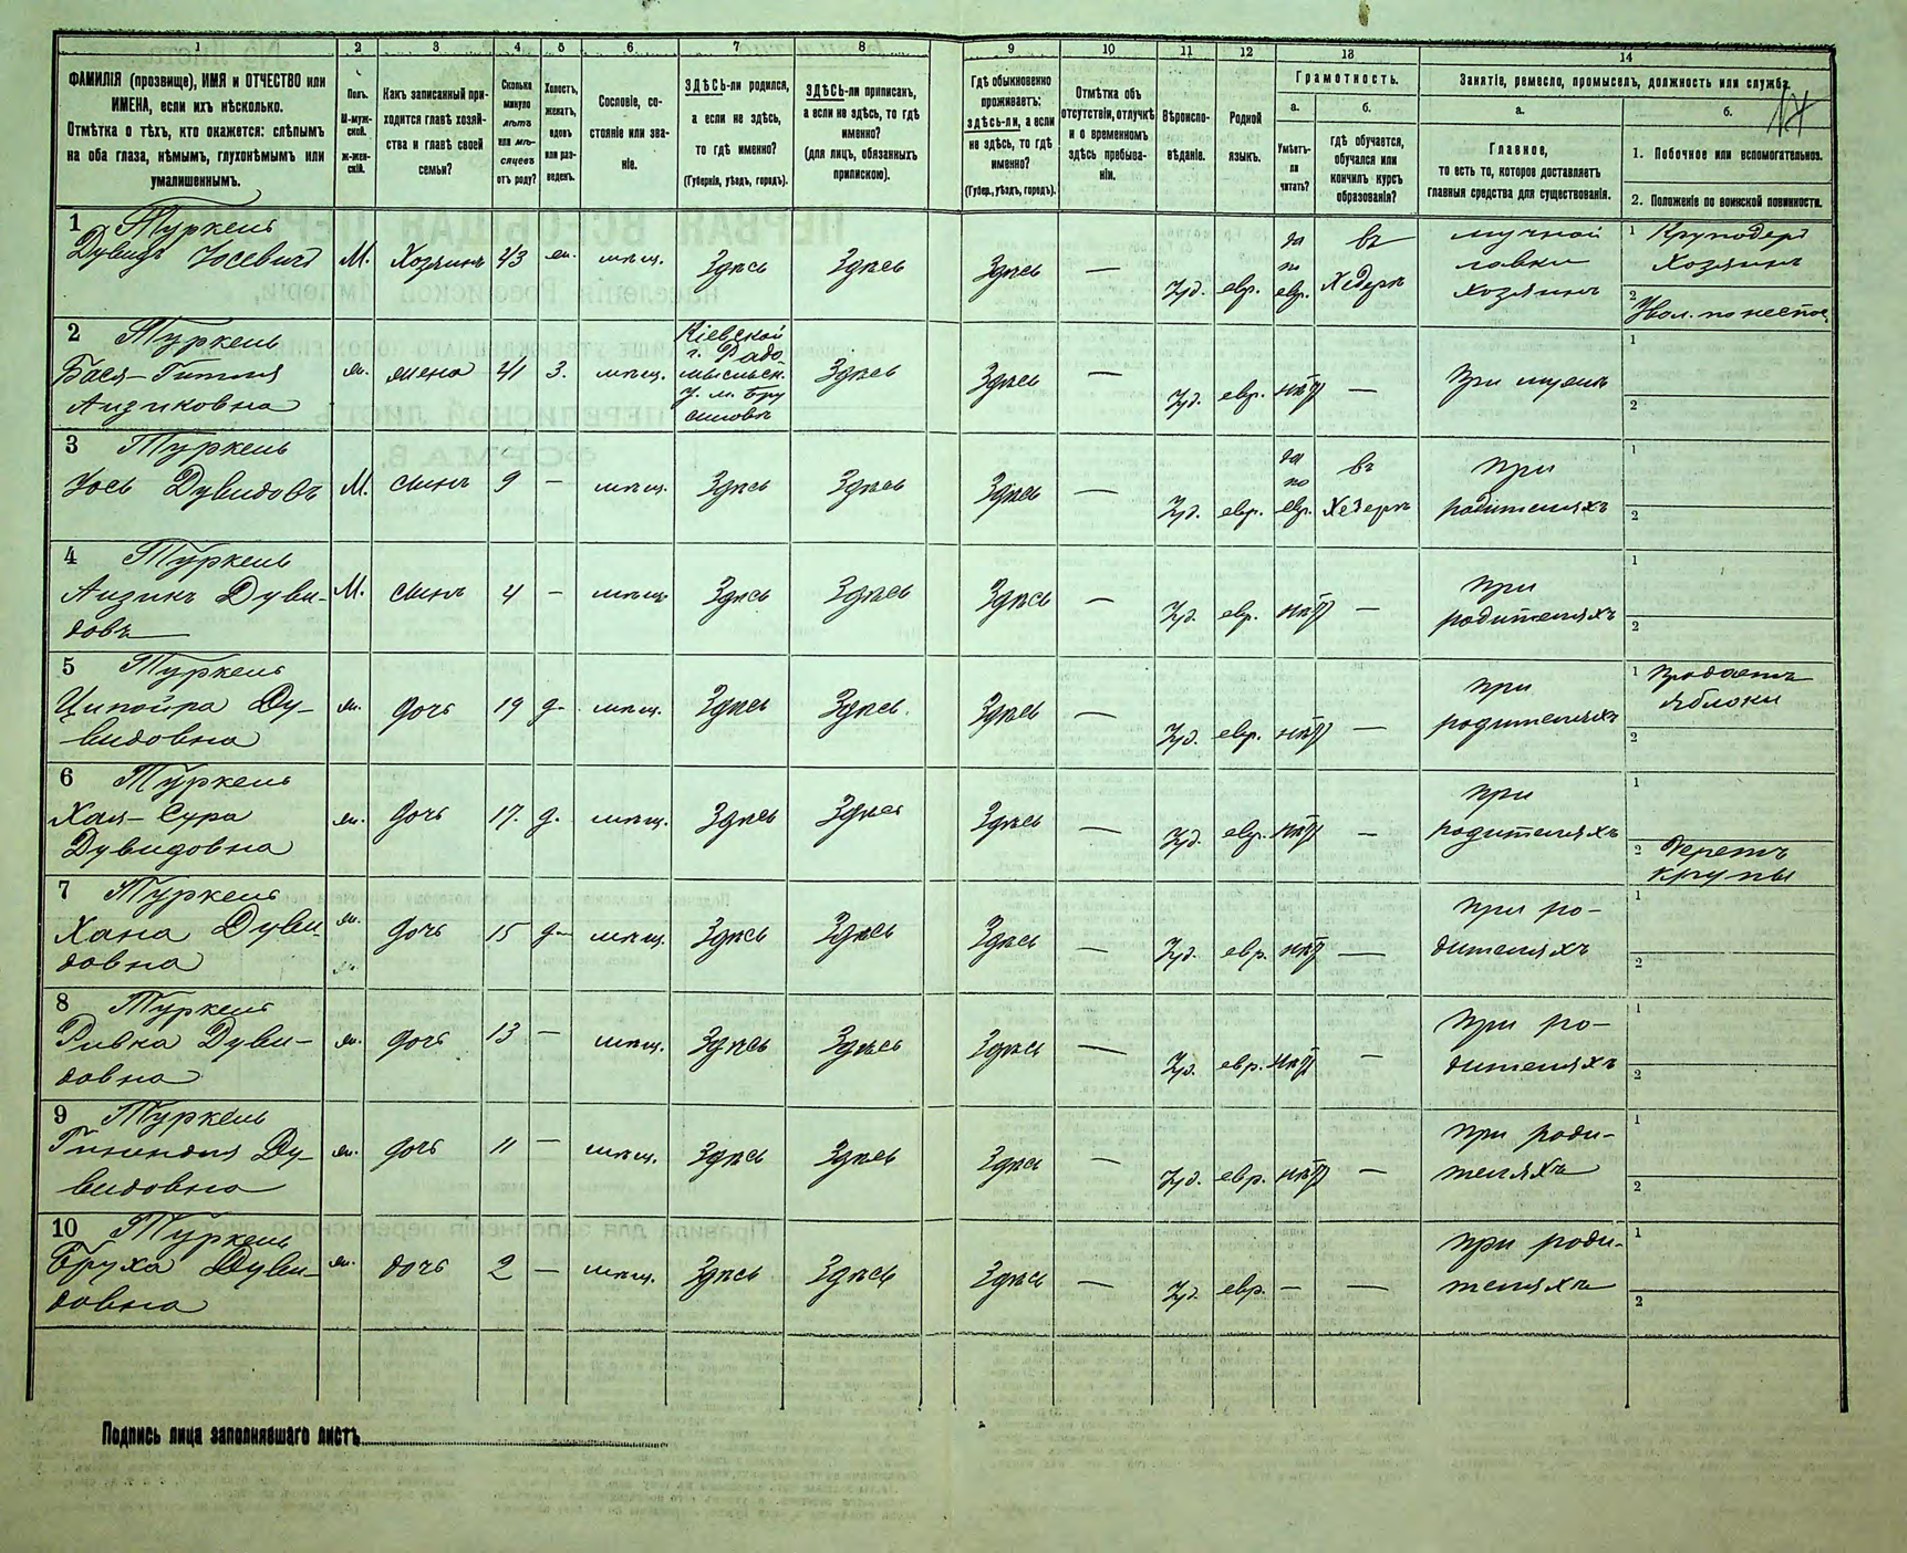 1 2 3 4 5 6 7 8 9 10 11 12 13 14
ФАМИЛІЯ (прозвище), ИМЯ и ОТЧЕСТВО или
ИМЕНА, если ихъ нѣсколько.
Отмѣтка о тѣхъ, кто окажется: слѣпымъ
на оба глаза, нѣмымъ, глухонѣмымъ или
умалишеннымъ.
Полъ.
М-муж-
ской.
Ж-жен-
скій.
Какъ записанный при-
ходится главѣ хозяй-
ства и главѣ своей
семьи?
Сколько
минуло
лѣтъ
или мѣ-
сяцевъ
отъ роду?
Холостъ,
женатъ,
вдовъ
или раз-
веденъ.
Сословіе, со-
стояніе или зва-
ніе.
ЗДѢСЬ-ли родился,
а если не здѣсь,
то гдѣ именно?
(Губернія, уѣздъ, городъ).
ЗДѢСЬ-ли приписанъ,
а если не здѣсь, то гдѣ
именно?
(для лицъ, обязанныхъ
припискою).
Гдѣ обыкновенно
проживаетъ:
здѣсь-ли, а если
не здѣсь, то гдѣ
именно?
(Губер., уѣздъ, городъ).
Отмѣтка объ
отсутствіи, отлучкѣ
и о временномъ
здѣсь пребыва-
ніи.
Вѣроиспо-
вѣданіе.
Родной
языкъ.
Грамотность.
а.
Умѣетъ-
ли
читать?
б.
гдѣ обучается,
обучался или
кончилъ курсъ
образованія?
Занятіе, ремесло, промыселъ, должность или служба.
а.
Главное,
то есть то, которое доставляетъ
главныя средства для существованія.
б.
1. Побочное или вспомогательное.
2. Положеніе по воинской повинности.
17
1 Туркель
Дувидъ Іосевичъ М. Хозяинъ 43 ж. мѣщ. Здѣсь Здѣсь Здѣсь — Іуд. евр. да по евр. въ Хедерѣ мучной лавки хозяинъ 1 Круподеръ Хозяинъ
2 Увол. по неспос.
2 Туркель
Бася-Гитля
Аизиковна ж. жена 41 З. мѣщ. Кіевской г. Радомысльск. у. м. Брусиловъ Здѣсь Здѣсь — Іуд. евр. нѣтъ — При мужѣ 1
2
3 Туркель
Іось Дувидовъ М. сынъ 9 — мѣщ. Здѣсь Здѣсь Здѣсь — Іуд. евр. да по евр. въ Хедерѣ при родителяхъ 1
2
4 Туркель
Аизикъ Дуви-
довъ М. сынъ 4 — мѣщ. Здѣсь Здѣсь Здѣсь — Іуд. евр. нѣтъ — при родителяхъ 1
2
5 Туркель
Ципойра Ду-
видовна ж. дочь 19 д. мѣщ. Здѣсь Здѣсь Здѣсь — Іуд. евр. нѣтъ — при родителяхъ 1 Продаетъ яблоки
2
6 Туркель
Хая-Сура
Дувидовна ж. дочь 17. д. мѣщ. Здѣсь Здѣсь Здѣсь — Іуд. евр. нѣтъ — при родителяхъ 1
2 Деретъ крупы
7 Туркель
Хана Дуви-
довна ж. дочь 15 д. мѣщ. Здѣсь Здѣсь Здѣсь — Іуд. евр. нѣтъ — при ро-
дителяхъ 1
2
8 Туркель
Ривка Дуви-
довна ж. дочь 13 — мѣщ. Здѣсь Здѣсь Здѣсь — Іуд. евр. нѣтъ — при ро-
дителяхъ 1
2
9 Туркель
Ду-
видовна ж. дочь 11 — мѣщ. Здѣсь Здѣсь Здѣсь — Іуд. евр. нѣтъ — при роди-
теляхъ 1
2
10 Туркель
Бруха Дуви-
довна ж. дочь 2 — мѣщ. Здѣсь Здѣсь Здѣсь — Іуд. евр. — — при роди-
теляхъ 1
2
Подпись лица заполнявшаго листъ